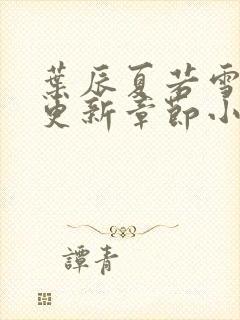 葉辰夏若雪
更新章節小
譚青